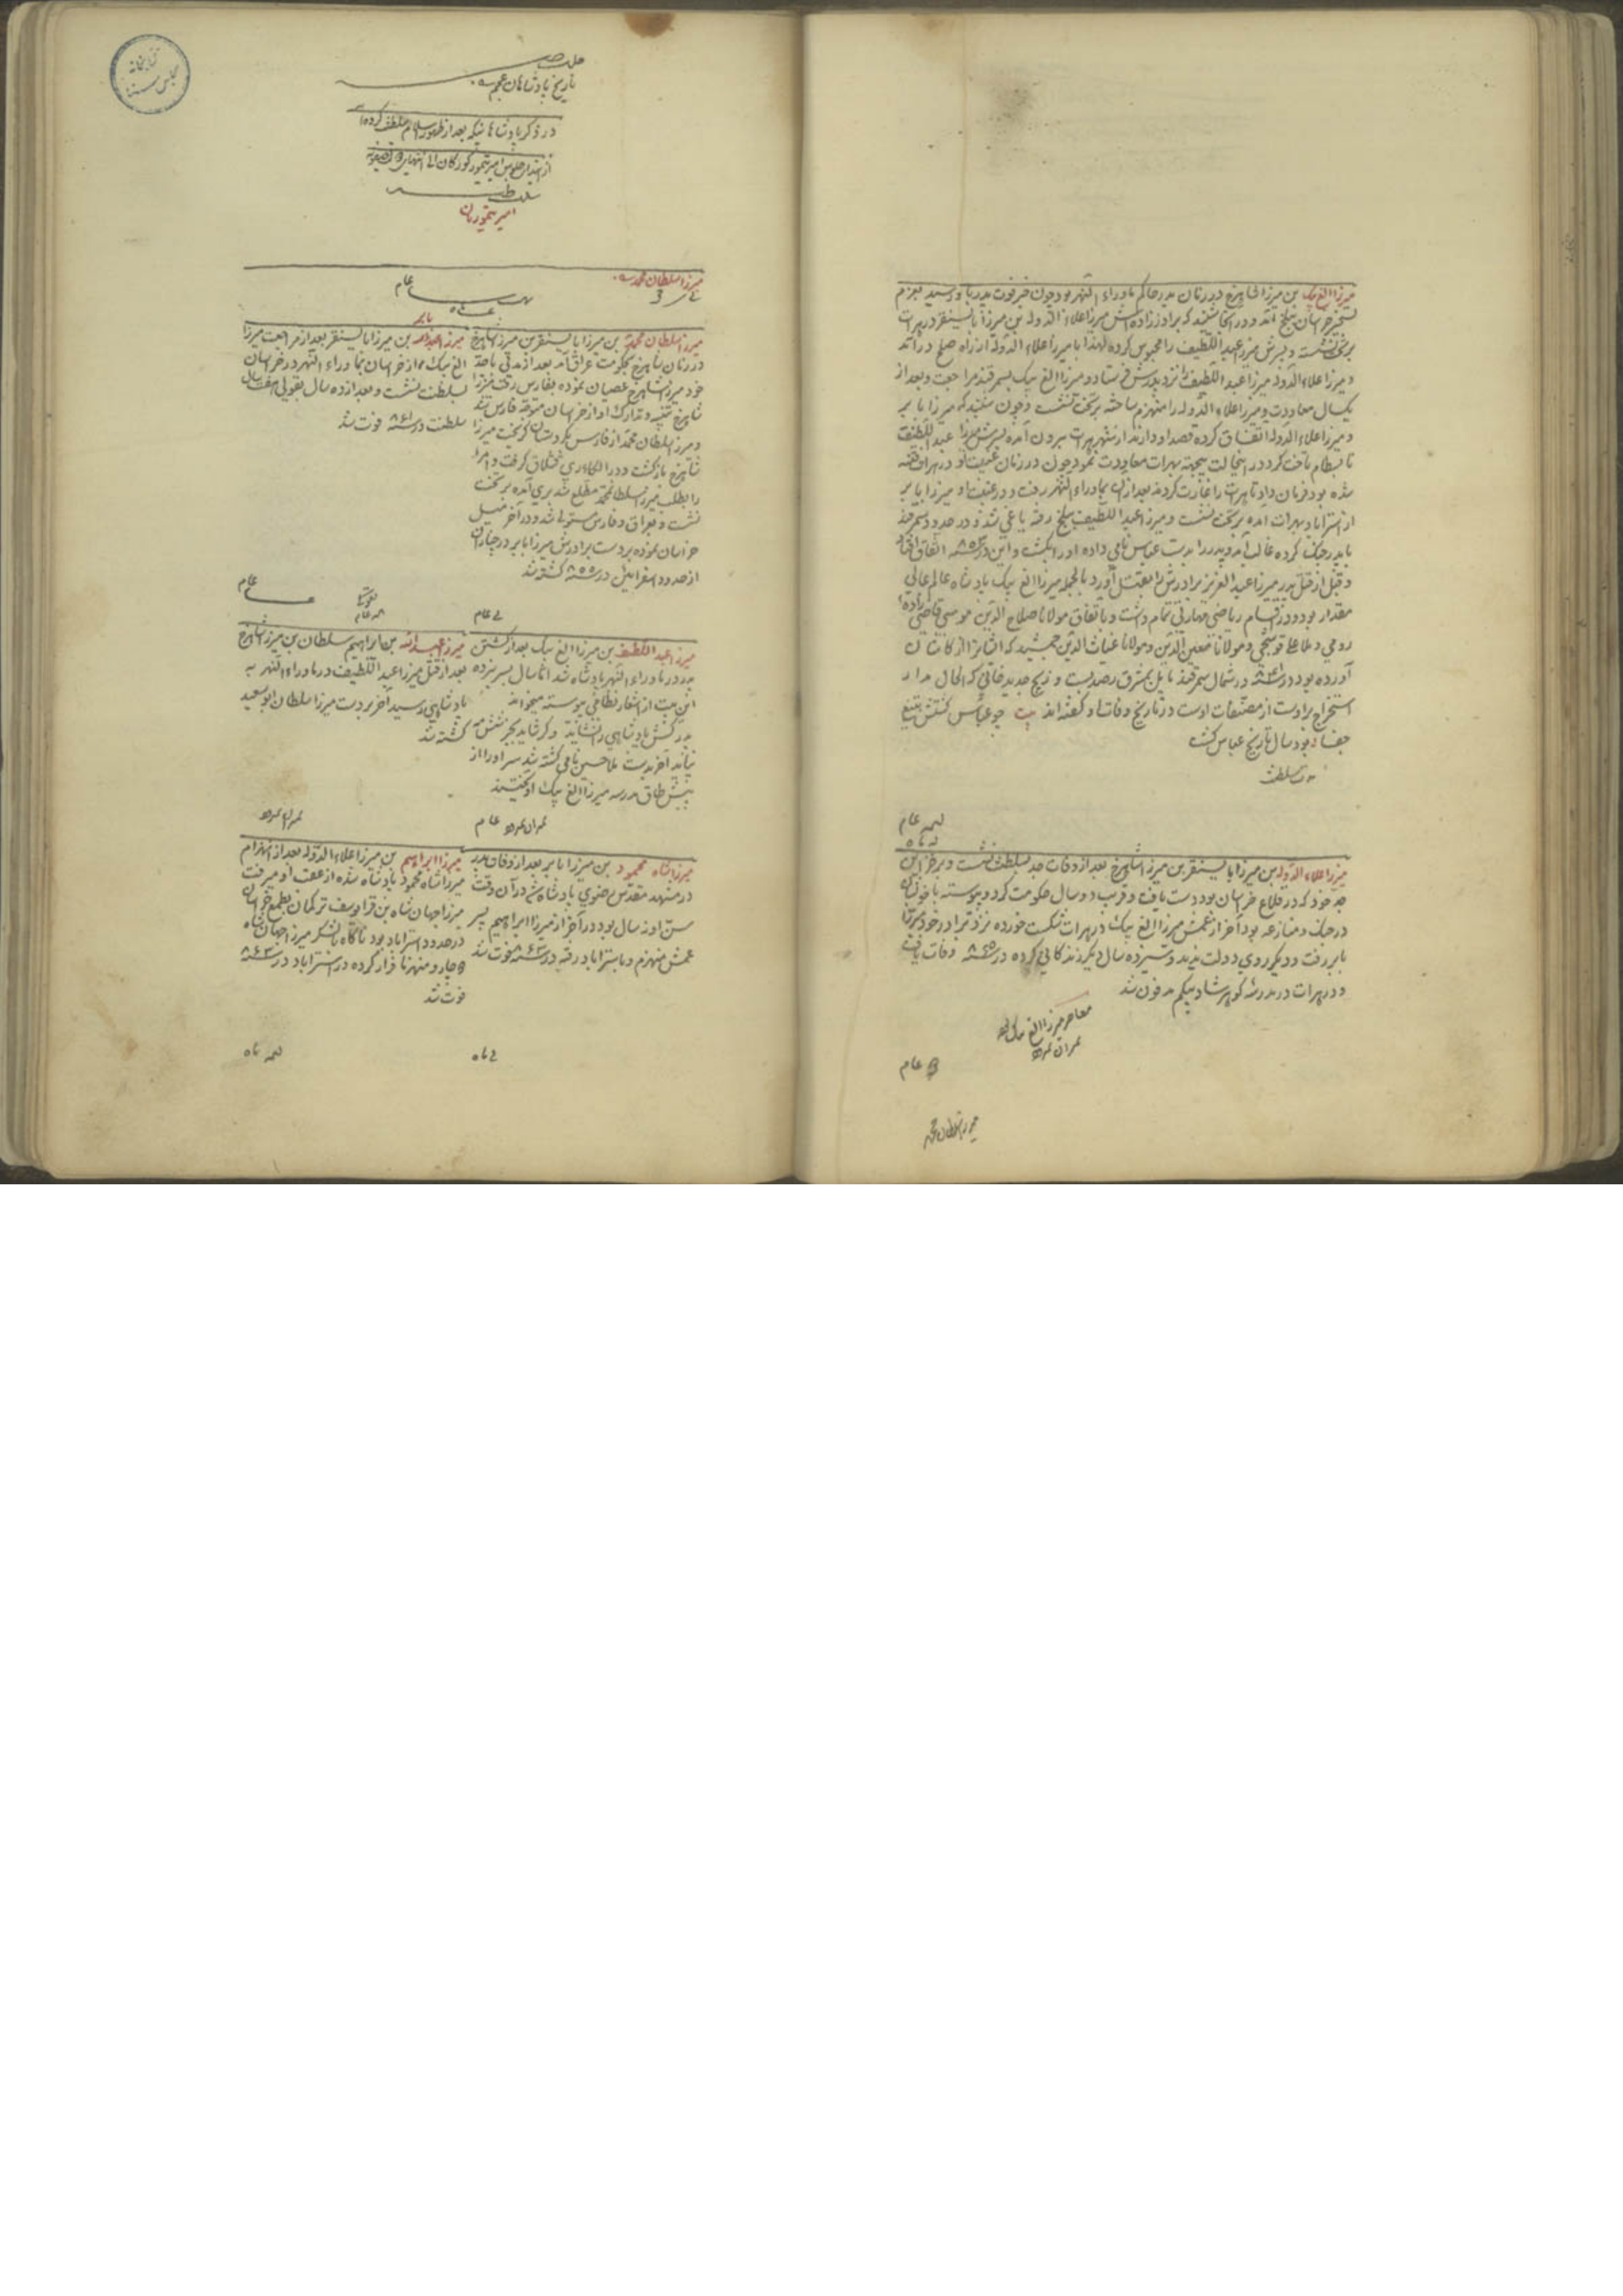 میرزا الغ بیک بن میرزا شاهرخ در زمان پدر حاکم ماوراء النهر بود چون خبر فوت پدر باو رسید بعزم
تسخیر خراسان ببلخ آمد و در آنجا شنید که برادرزاده اش میرزا علاء الدوله بن میرزا بایسنقر در هرات
بر تخت نشسته و پسرش میرزا عبد اللطیف را محبوس کرده لهذا با میرزا علاء الدوله از راه صلح در آمد
و میرزا علاء الدوله میرزا عبد اللطیف را نزد پدرش فرستاد و میرزا الغ بیک بسمرقند مراجعت و بعد از
یکسال معاودت و میرزا علاء الدوله را منهزم ساخته بر تخت نشست و چون شنید که میرزا بابر
و میرزا علاء الدوله اتفاق کرده قصد او دارند از شهر هرات بیرون آمده پسرش میرزا عبد اللطیف
تا بسطام تاخت کرد در اینحالت بهرات معاودت نمود چون در زمان غیبت او در هرات فتنه
شده بود فرمان داد تا هرات را غارت کردند بعد از آن بماوراء النهر رفت و در عقب او میرزا بابر
از استراباد بهرات آمده بر تخت نشست و میرزا عبد اللطیف ببلخ رفته یاغی شد و در حدود سمرقند
با پدر جنگ کرده غالب آمد و پدر را بدست عباس نامی داده او را بکشت و این در سنه ۸۵۳ اتفاق افتاد
و قبل از قتل پدر میرزا عبد العزیز برادرش را بقتل آورد بالجمله میرزا الغ بیک پادشاه عالم عالی
مقدار بود و در اقسام ریاضی مهارتی تمام داشت و باتفاق مولانا صلاح الدین موسی قاضی زاده
رومی و ملا علی قوشجی و مولانا معین الدین و مولانا غیاث الدین جمشید که ایشانرا از کاشان
آورده بود در سنه در شمال سمرقند مایل بمشرق رصد بست و زیج جدید خاقانی که الحال مدار
استخراج بر اوست از مصنفات اوست و در تاریخ وفات او گفته اند بیت چو عباس کشتش بتیغ
جفا بود سال تاریخ عباس کشت
مدت سلطنت
عام
میرزا علاء الدوله بن میرزا بایسنقر بن میرزا شاهرخ بعد از وفات جد بسلطنت نشست و بر خزاین
جد خود که در قلاع خراسان بود دست یافت و قرب دو سال حکومت کرد و پیوسته با خویشان
در جنگ و منازعه بود آخر از عمش میرزا الغ بیک در هرات شکست خورده نزد برادر خود میرزا
بابر رفت و دیگر روی دولت ندید و سیزده سال دیگر زندگانی کرده در سنه ۸۶۵ وفات یافت
و در هرات در مدرسه گوهرشاد بیگم مدفون شد
معاصر میرزا الغ
عام
میرزا سلطان محمد
تاریخ پادشاهان عجم
در ذکر پادشاهانیکه بعد از ظهور اسلام سلطنت کرده اند
از ابتدای جلوس امیر تیمور گورکان الی انتهای
سلطنت
امیر تیموریان
میرزا سلطان محمد
عام
میرزا سلطان محمد بن میرزا بایسنقر بن میرزا شاهرخ
در زمان شاهرخ بحکومت عراق آمد بعد از مدتی با جد
خود میرزا شاهرخ عصیان نموده بفارس رفت میرزا
شاهرخ بتنبیه و تدارک او از خراسان متوجه فارس شد
و میرزا سلطان محمد از فارس بکردستان گریخت میرزا
شاهرخ بازگشت و در ری قشلاق گرفت و امرا
را بطلب میرزا سلطان محمد بری آمده بر تخت
نشست و بعراق و فارس مستولی شد و در آخر میل
خراسان نموده بر دست برادرش میرزا بابر در
از حدود اسفراین در سنه ۸۵۵ کشته شد
عام
بابر
میرزا بن میرزا بایسنقر بعد از مراجعت میرزا
الغ بیک از خراسان بماوراء النهر در خراسان
بسلطنت نشست و بعد از ده سال بقولی هفت سال
سلطنت در سنه ۸۶۱ فوت شد
عام
میرزا عبد اللطیف بن میرزا الغ بیک بعد از کشتن
پدر در ماوراء النهر پادشاه شد اما سال بسر نبرده
این بیت از اشعار نظامی پیوسته میخواند
پدر کش پادشاهی را نشاید وگر شاید بجز شش مه
نپاید آخر بدست بابا حسین نامی کشته شد سر او را از
پیش طاق مدرسه میرزا الغ بیک آویختند
عام
میرزا عبد الله بن ابراهیم سلطان بن میرزا شاهرخ
بعد از قتل میرزا عبد اللطیف در ماوراء النهر به
پادشاهی رسید آخر بر دست میرزا سلطان ابو سعید
کشته شد
میرزا شاه محمود بن میرزا بابر بعد از وفات پدر
در مشهد مقدس رضوی پادشاه شد در آن وقت
سن او نه سال بود در آخر از میرزا ابراهیم پسر
عمش منهزم و باستراباد رفته در سنه ۸۶۳ فوت شد
میرزا ابراهیم بن میرزا علاء الدوله بعد از انهزام
میرزا شاه محمود پادشاه شده از عقب او میرفت
میرزا جهان شاه بن قرا یوسف ترکمان بطمع خراسان
در حدود استراباد بود ناگاه بلشکر میرزا جهان شاه
دچار و منهزما فرار کرده در استراباد در سنه ۸۶۳
فوت شد
کتابخانه
مجلس سنا